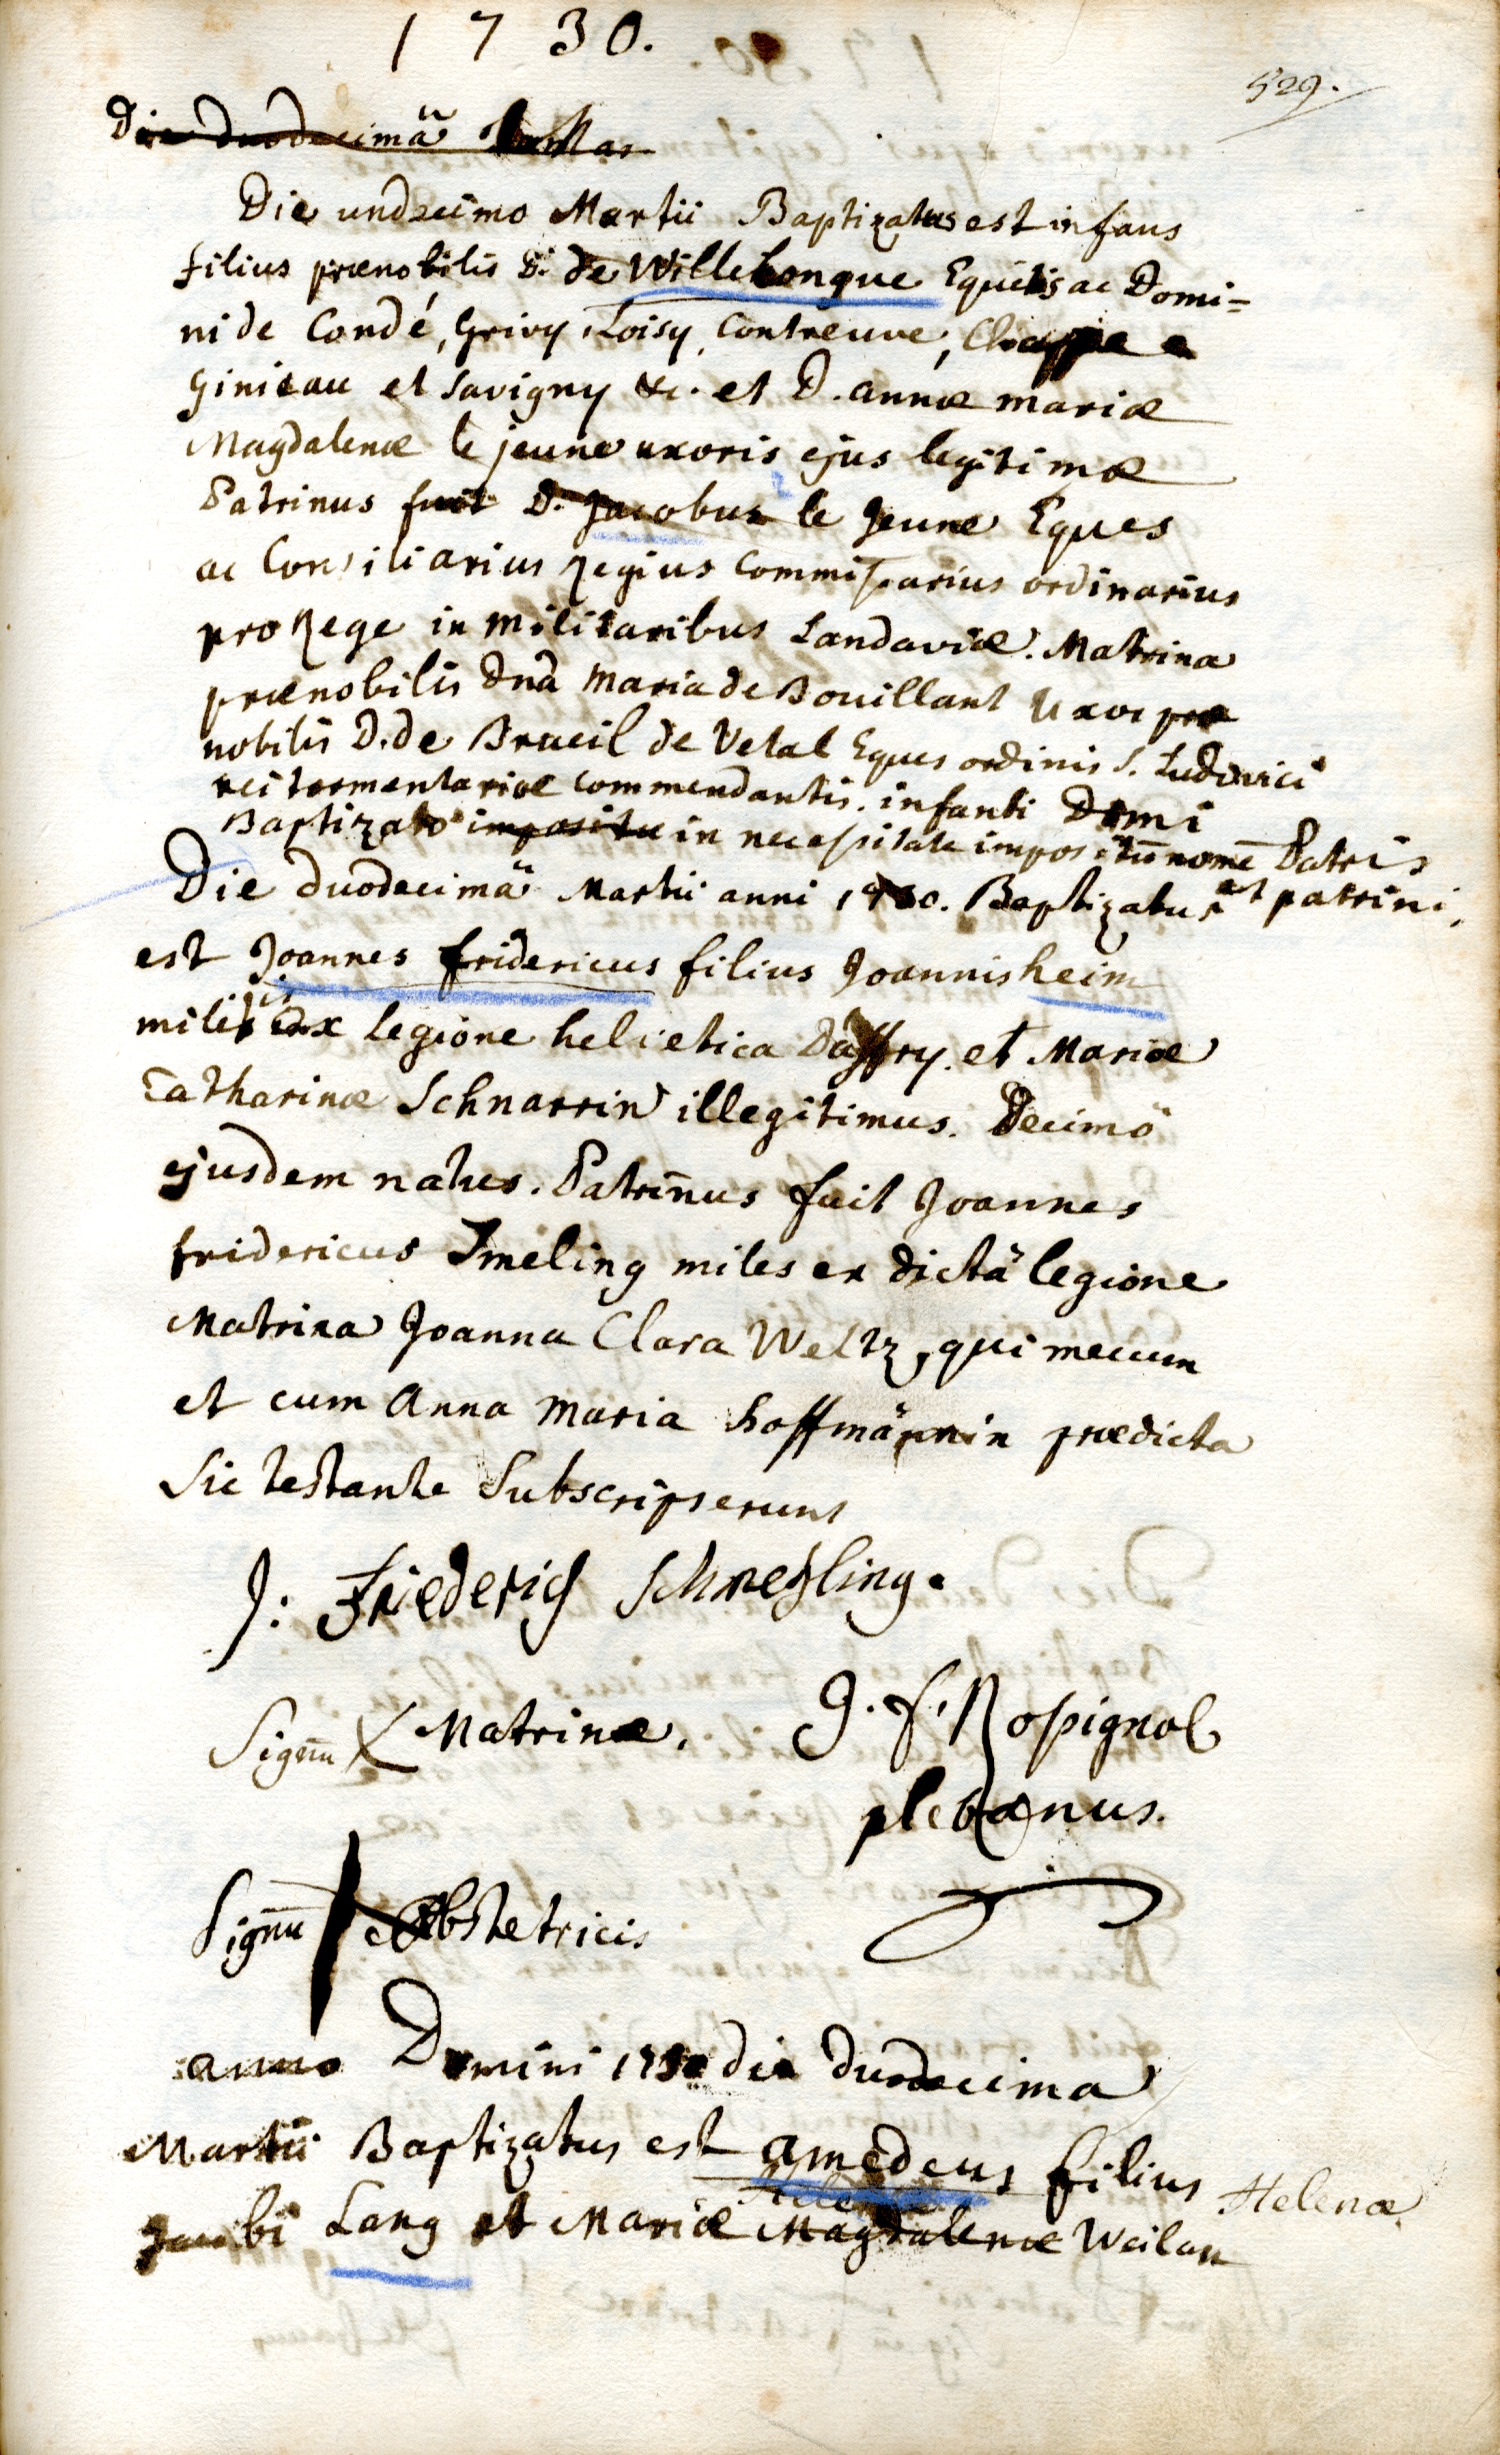 1730.
529.
Die duodecimâ
Die undecimo Martii Baptizatus est infans
filius prænobilis D. de Willelongue Equitis ac Domi=
ni de Condé, Grivy, Loisy, Contreuve,
Ginicau et Savigny &c. et D. annæ mariæ
Magdalenæ le jeune uxoris ejus legitimæ
Patrinus fuit D. Jacobus le Jeune Eques
ac Consiliarius Regius Commissarius ordinarius
pro Rege in militaribus Landaviæ. Matrina
prænobilis Dnã Maria de Bouillant Uxor præ
nobilis D. de Brueil de Vetal Eques ordinis S. Ludovici
rei tormentariæ commendantis. infanti Domi
Baptizato impositu in necessitate impositũ nomẽ Patris
et patrini.
Die duodecimâ Martii anni 1730. Baptizatus
est Joannes fridericus filius Joannis heim
militis ex legione helvetica Daffry. et Mariæ
Catharinæ Schnarrin illegitimus. Decimô
ejusdem natus. Patrinus fuit Joannes
fridericus Smeling miles ex dictâ legione
Matrina Joanna Clara Weltz, qui mecum
et cum Anna Maria hoffmännin prædicta
Sic testante Subscripserunt
J: Friederich Schmeßling.
Signũ X Matrinæ.
J. F. Ropignol
plebanus.
Signũ Obstetricis
anno Domini 1730 die duodecima
Martii Baptizatus est amedeus filius
Helenæ
Jacobi Lang et Mariæ Magdalenæ Weilan